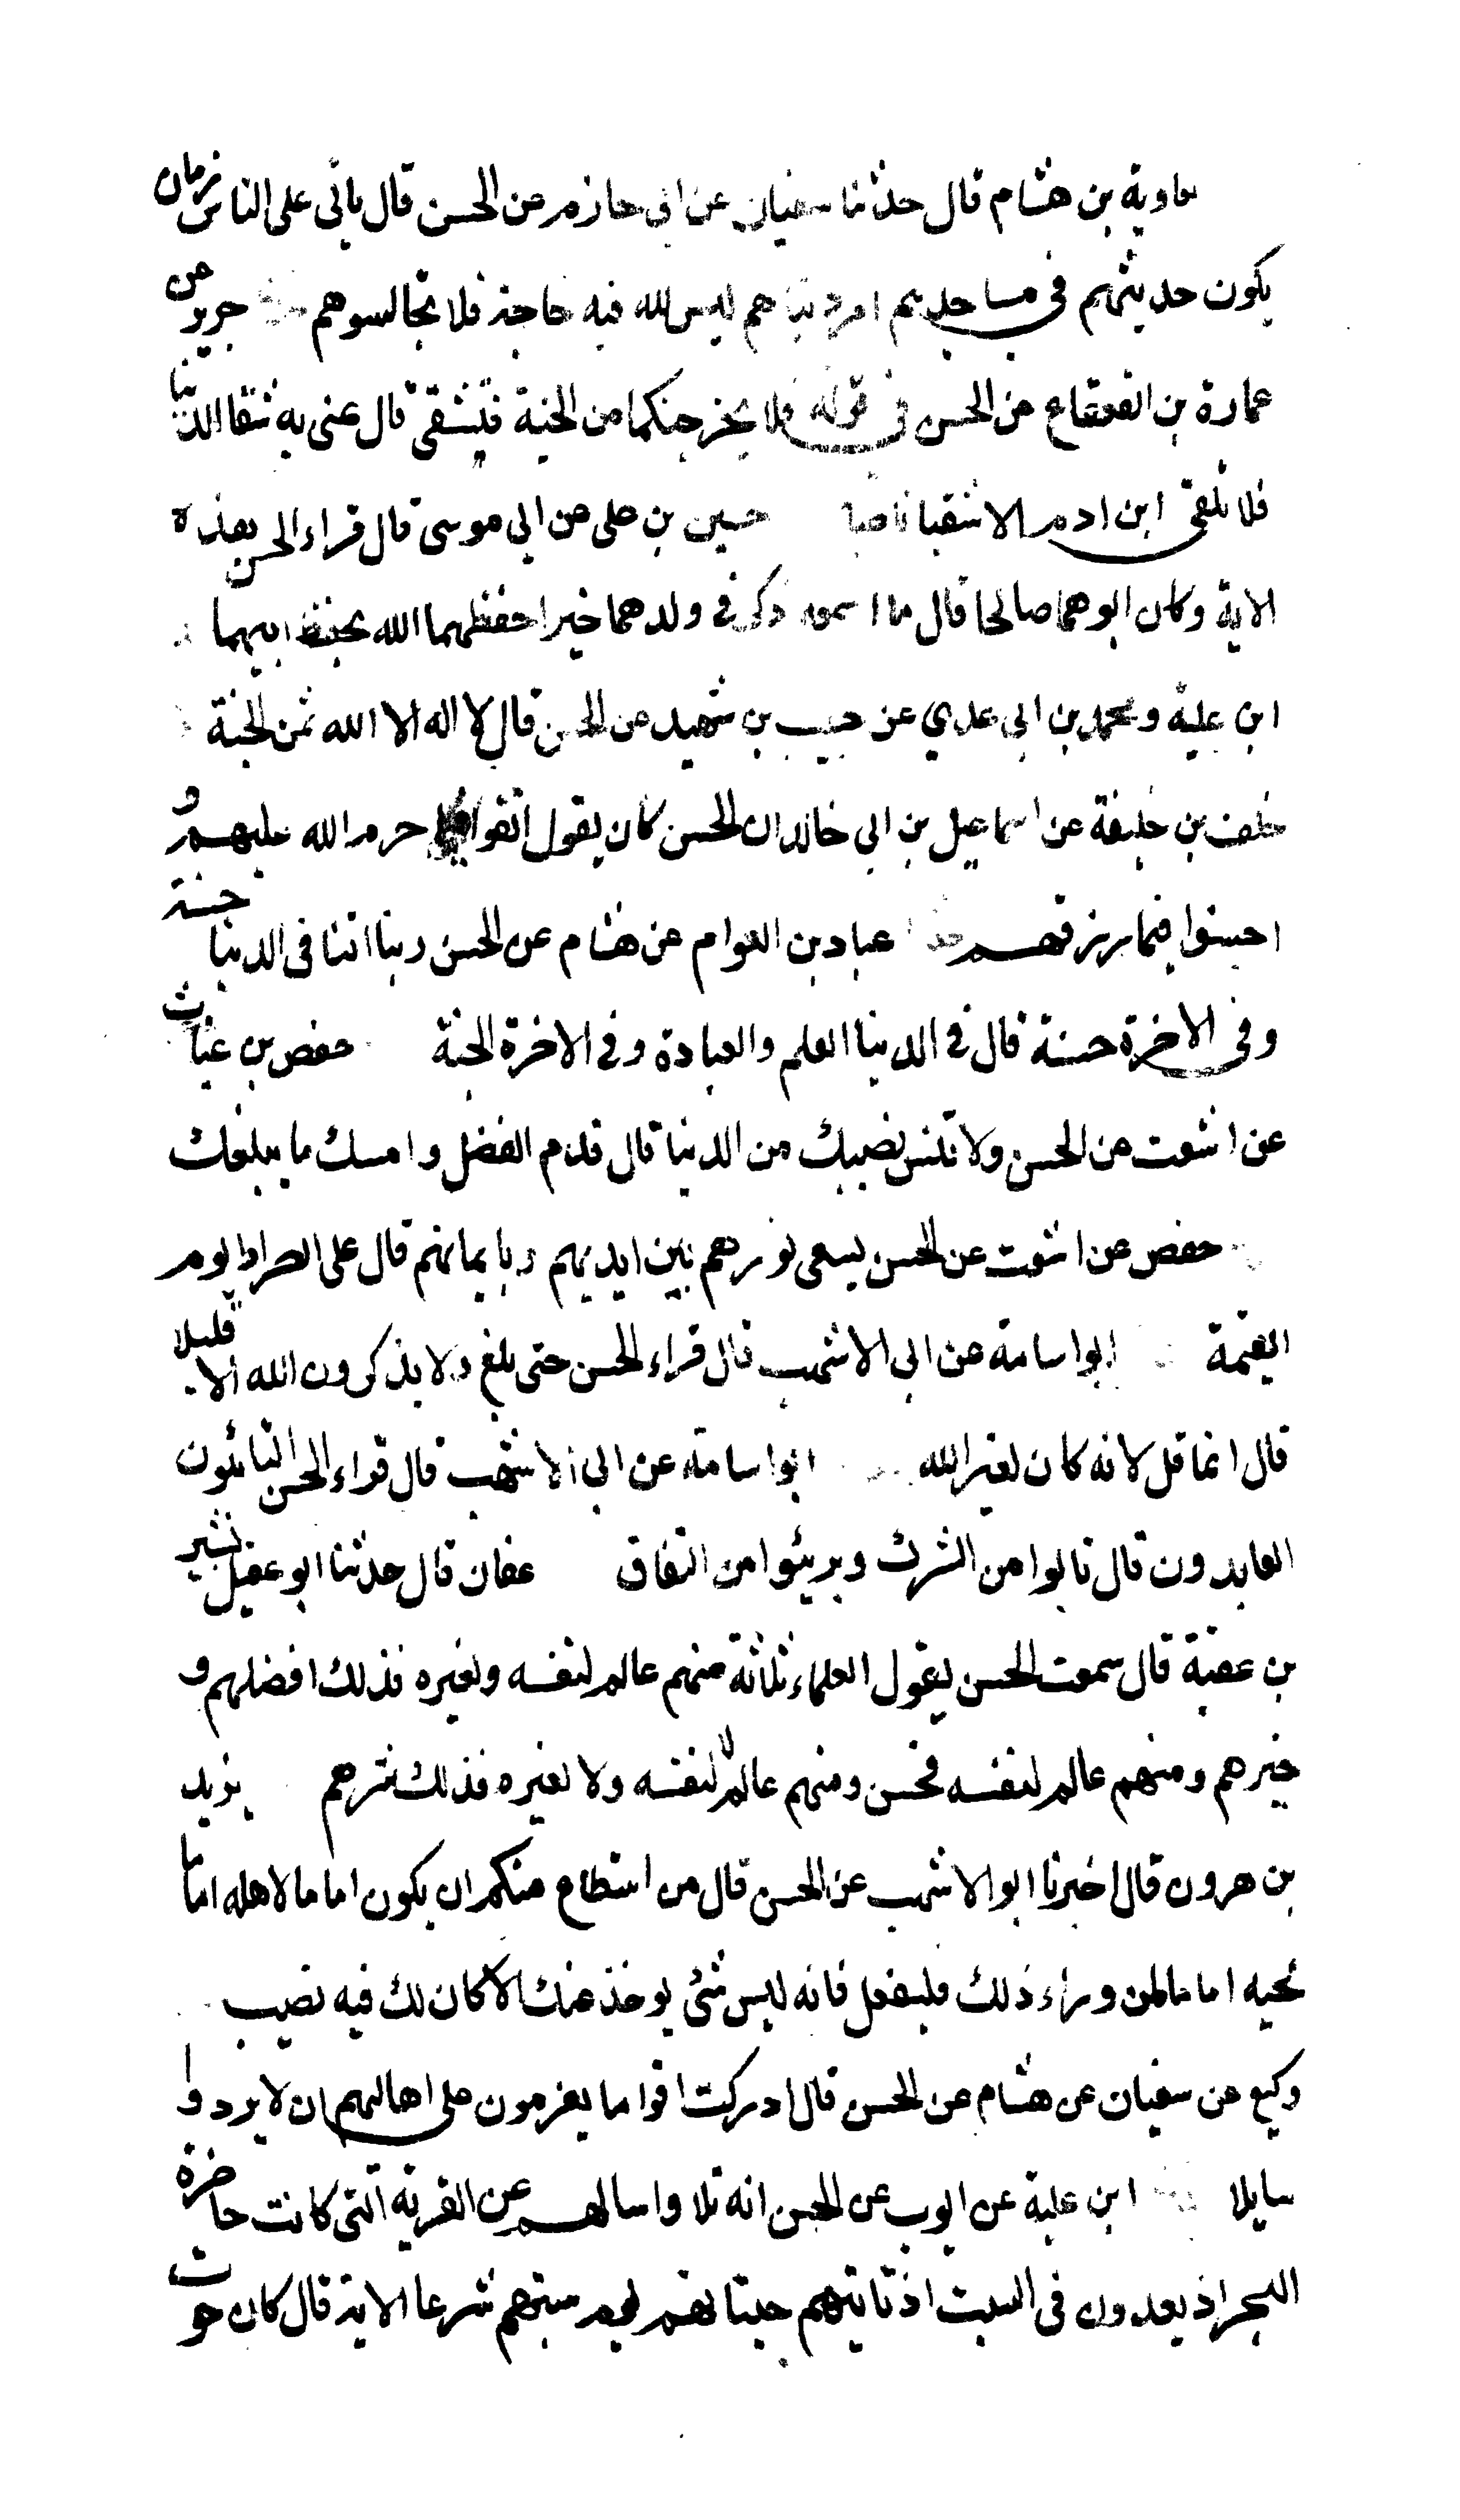 معاوية بن هشام قال حدثنا سفيان عن ابي حازم عن الحسن قال ياتي على الناس زمان
يكون حديثهم في مساجدهم امر دنياهم ليس لله فيه حاجة فلا تجالسوهم جرير عن
عمارة بن القعقاع عن الحسن في قوله فلا يخرجنكما من الجنة فتشقى قال عنى به شقا الدنيا
فلا تلقى ابن ادم الا شقيا ناصبا حسين بن علي عن ابي موسى قال قراء الحسن هذه
الاية وكان ابوهما صالحا قال ما اسمعه ذكر في ولدهما خيرا حفظهما الله بحفظ ابيهما
ابن علية ومحمد بن ابي عدي عن حبيب بن شهيد عن الحسن قال لا اله الا الله ثمن الجنة
خلف بن خليفة عن اسماعيل بن ابي خالد ان الحسن كان يقول اتقوا فيما حرم الله عليهم و
احسنوا فيما رزقهم عباد بن العوام عن هشام عن الحسن ربنا اتنا في الدنيا حسنة
وفي الاخرة حسنة قال في الدنيا العلم والعبادة وفي الاخرة الجنة حفص بن غياث
عن اشعث عن الحسن ولا تنس نصيبك من الدنيا قال قدم الفضل وامسك ما يبلغك
حفص عن اشعث عن الحسن يسعى نورهم بين ايديهم وبايمانهم قال على الصراط يوم
القيمة ابو اسامة عن ابي الاشهب قال قراء الحسن حتى بلغ ولا يذكرون الله الا قليلا
قال انما قل لانه كان لغير الله ابو اسامة عن ابي الاشهب قال قراء الحسن التائبون
العابدون قال تابوا من الشرك وبريئوا من النفاق عفان قال حدثنا ابو عقيل بشير
بن عقبة قال سمعت الحسن يقول العلماء ثلاثة منهم عالم لنفسه ولغيره فذلك افضلهم و
خيرهم ومنهم عالم لنفسه فحسن ومنهم عالم لا لنفسه ولا لغيره فذلك شرهم يزيد
بن هرون قال اخبرنا ابو الاشهب عن الحسن قال من استطاع منكم ان يكون اماما لاهله اماما
لحيه اماما لمن وراء ذلك فليفعل فانه ليس شئ يوخذ عنك الا كان لك فيه نصيب
وكيع عن سفيان عن هشام عن الحسن قال ادركت اقواما يعزمون على اهاليهم ان لا يردوا
سايلا ابن علية عن ايوب عن الحسن انه تلا واسالهم عن القرية التي كانت حاضرة
البحر اذ يعدون في السبت اذ تاتيهم حيتانهم يوم سبتهم شرعا الاية قال كان حوت